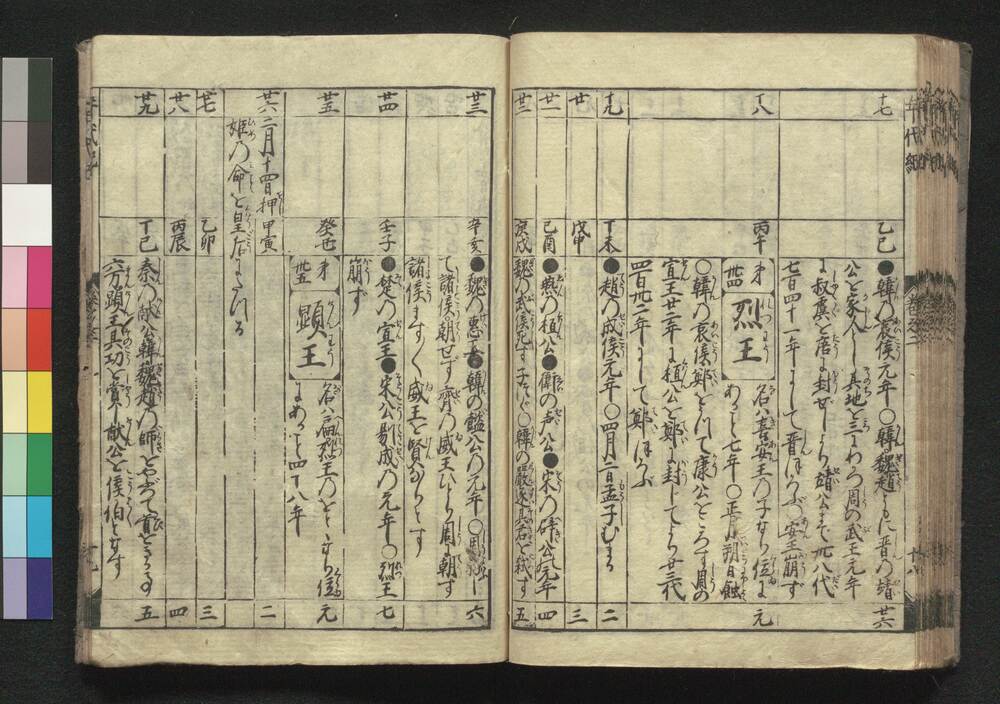 十七
乙巳
●韓の哀侯元年○韓魏趙ともに晋の靖
公を家人とし其地を三にわかつ周の武王元年
に叔虞を唐に封ぜしより靖公まで卅八代
七百四十一年にして晋ほろぶ安王崩ず
廿六
十八
丙午
第卅四
烈王
名ハ喜安王の子なり位に
ある七年○正月朔日蝕
元
○韓の哀侯鄭をうつて康公をころす周の
宣王廿二年に桓公を鄭に封じてより廿三代
四百卅二年にして鄭ほろぶ
十九
丁未
●趙の成侯元年○四月二日孟子むまる
二
廿
戊申
三
廿一
己酉
●燕の桓公●衛の声公●宋の辟公元年
四
廿二
庚戌
魏の武侯死す子
○韓の嚴遂其君を弑す
五
廿三
辛亥
●魏の惠王●韓の懿公の元年○周
て諸侯朝せず齊の威王ひとり周に朝す
諸侯ますく威王を賢なりとす
六
廿四
壬子
●楚の宣王●宋公剔成の元年○烈王
崩ず
七
廿五
癸丑
第卅五
顕王
名ハ扁烈王のおとゝなり位
にある四十八年
元
廿六
二月十四日押
姫の命を皇后にたつる
甲寅
二
廿七
乙卯
三
廿八
丙辰
四
廿九
丁巳
秦の献公韓魏趙の師をやぶつて首をきる事
六万顕王其功を賞し献公を侯伯となす
五
年代紀
巻之二
十八